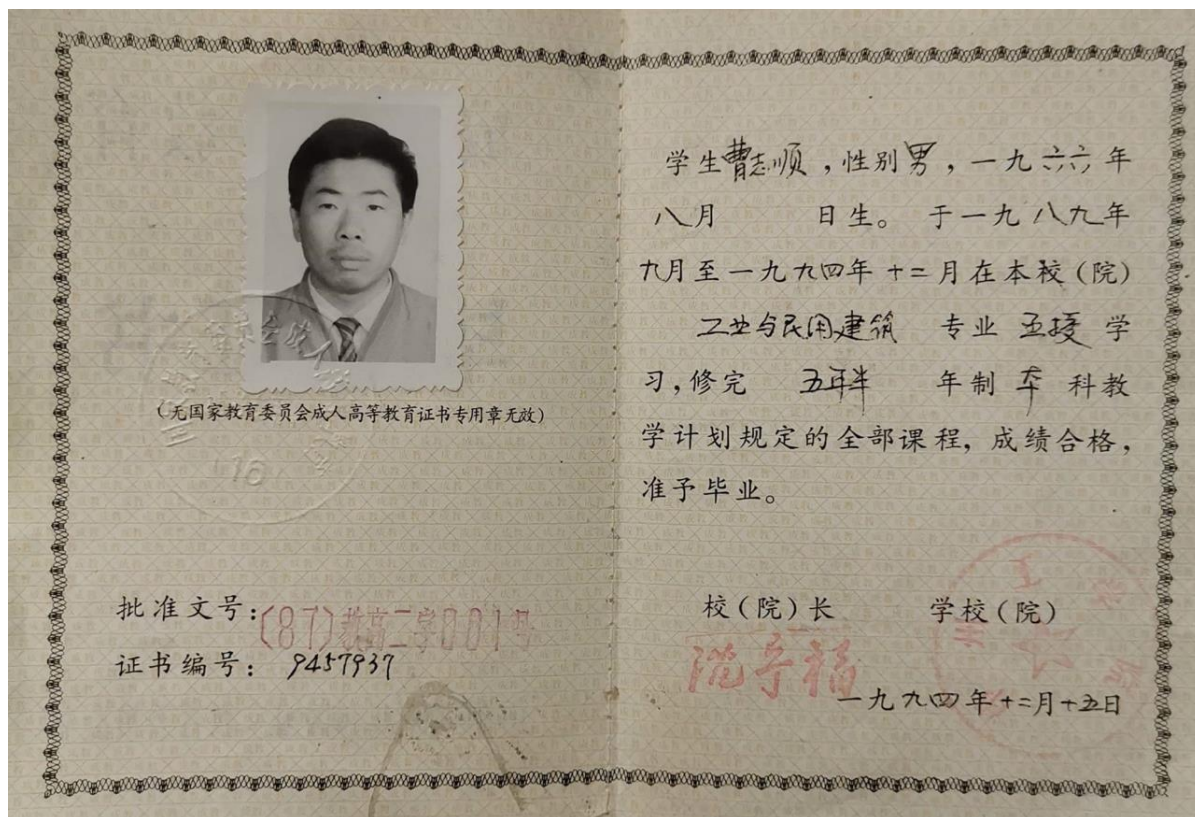 (无国家教育委员会成人高等教育证书专用章无效)
批准文号:(87)教高二字001号
证书编号: 9457937
学生曹志顺,性别男,一九六六年
八月 日生。于一九八九年
九月至一九九四年十二月在本校(院)
工业与民用建筑 专业 函授 学
习,修完 五年半 年制 本 科教
学计划规定的全部课程,成绩合格,
准予毕业。
校(院)长 学校(院)
一九九四年十二月十五日